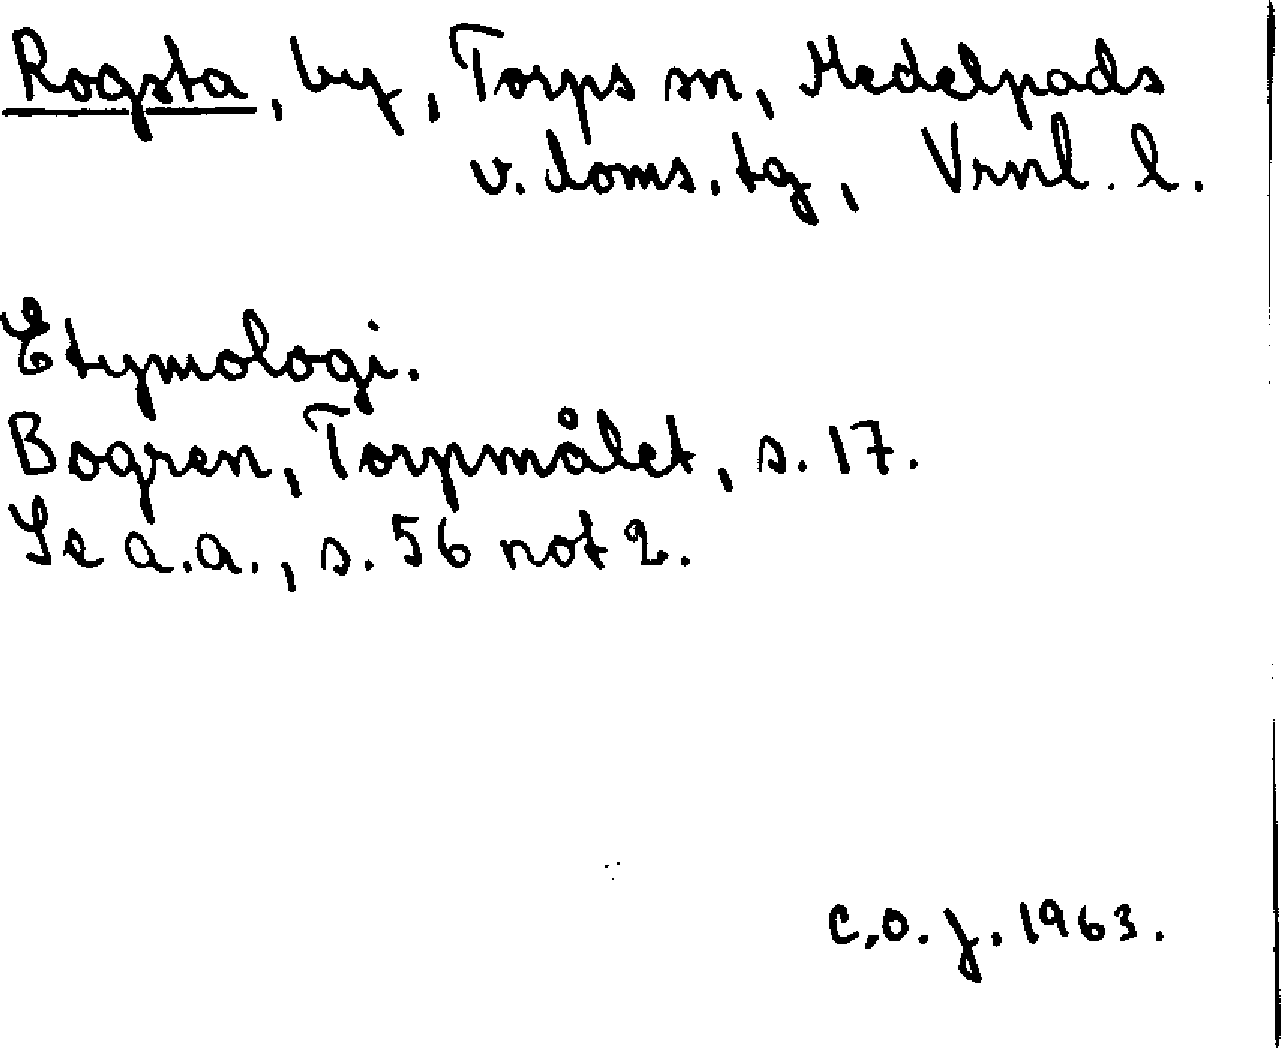 Rogsta, by, Torps sn, Medelpads
v. doms. tg, Vrnl. l.
Etymologi.
Bogren, Torpmålet, s. 17.
Se a.a., s. 56 not 2.
C.O.J. 1963.